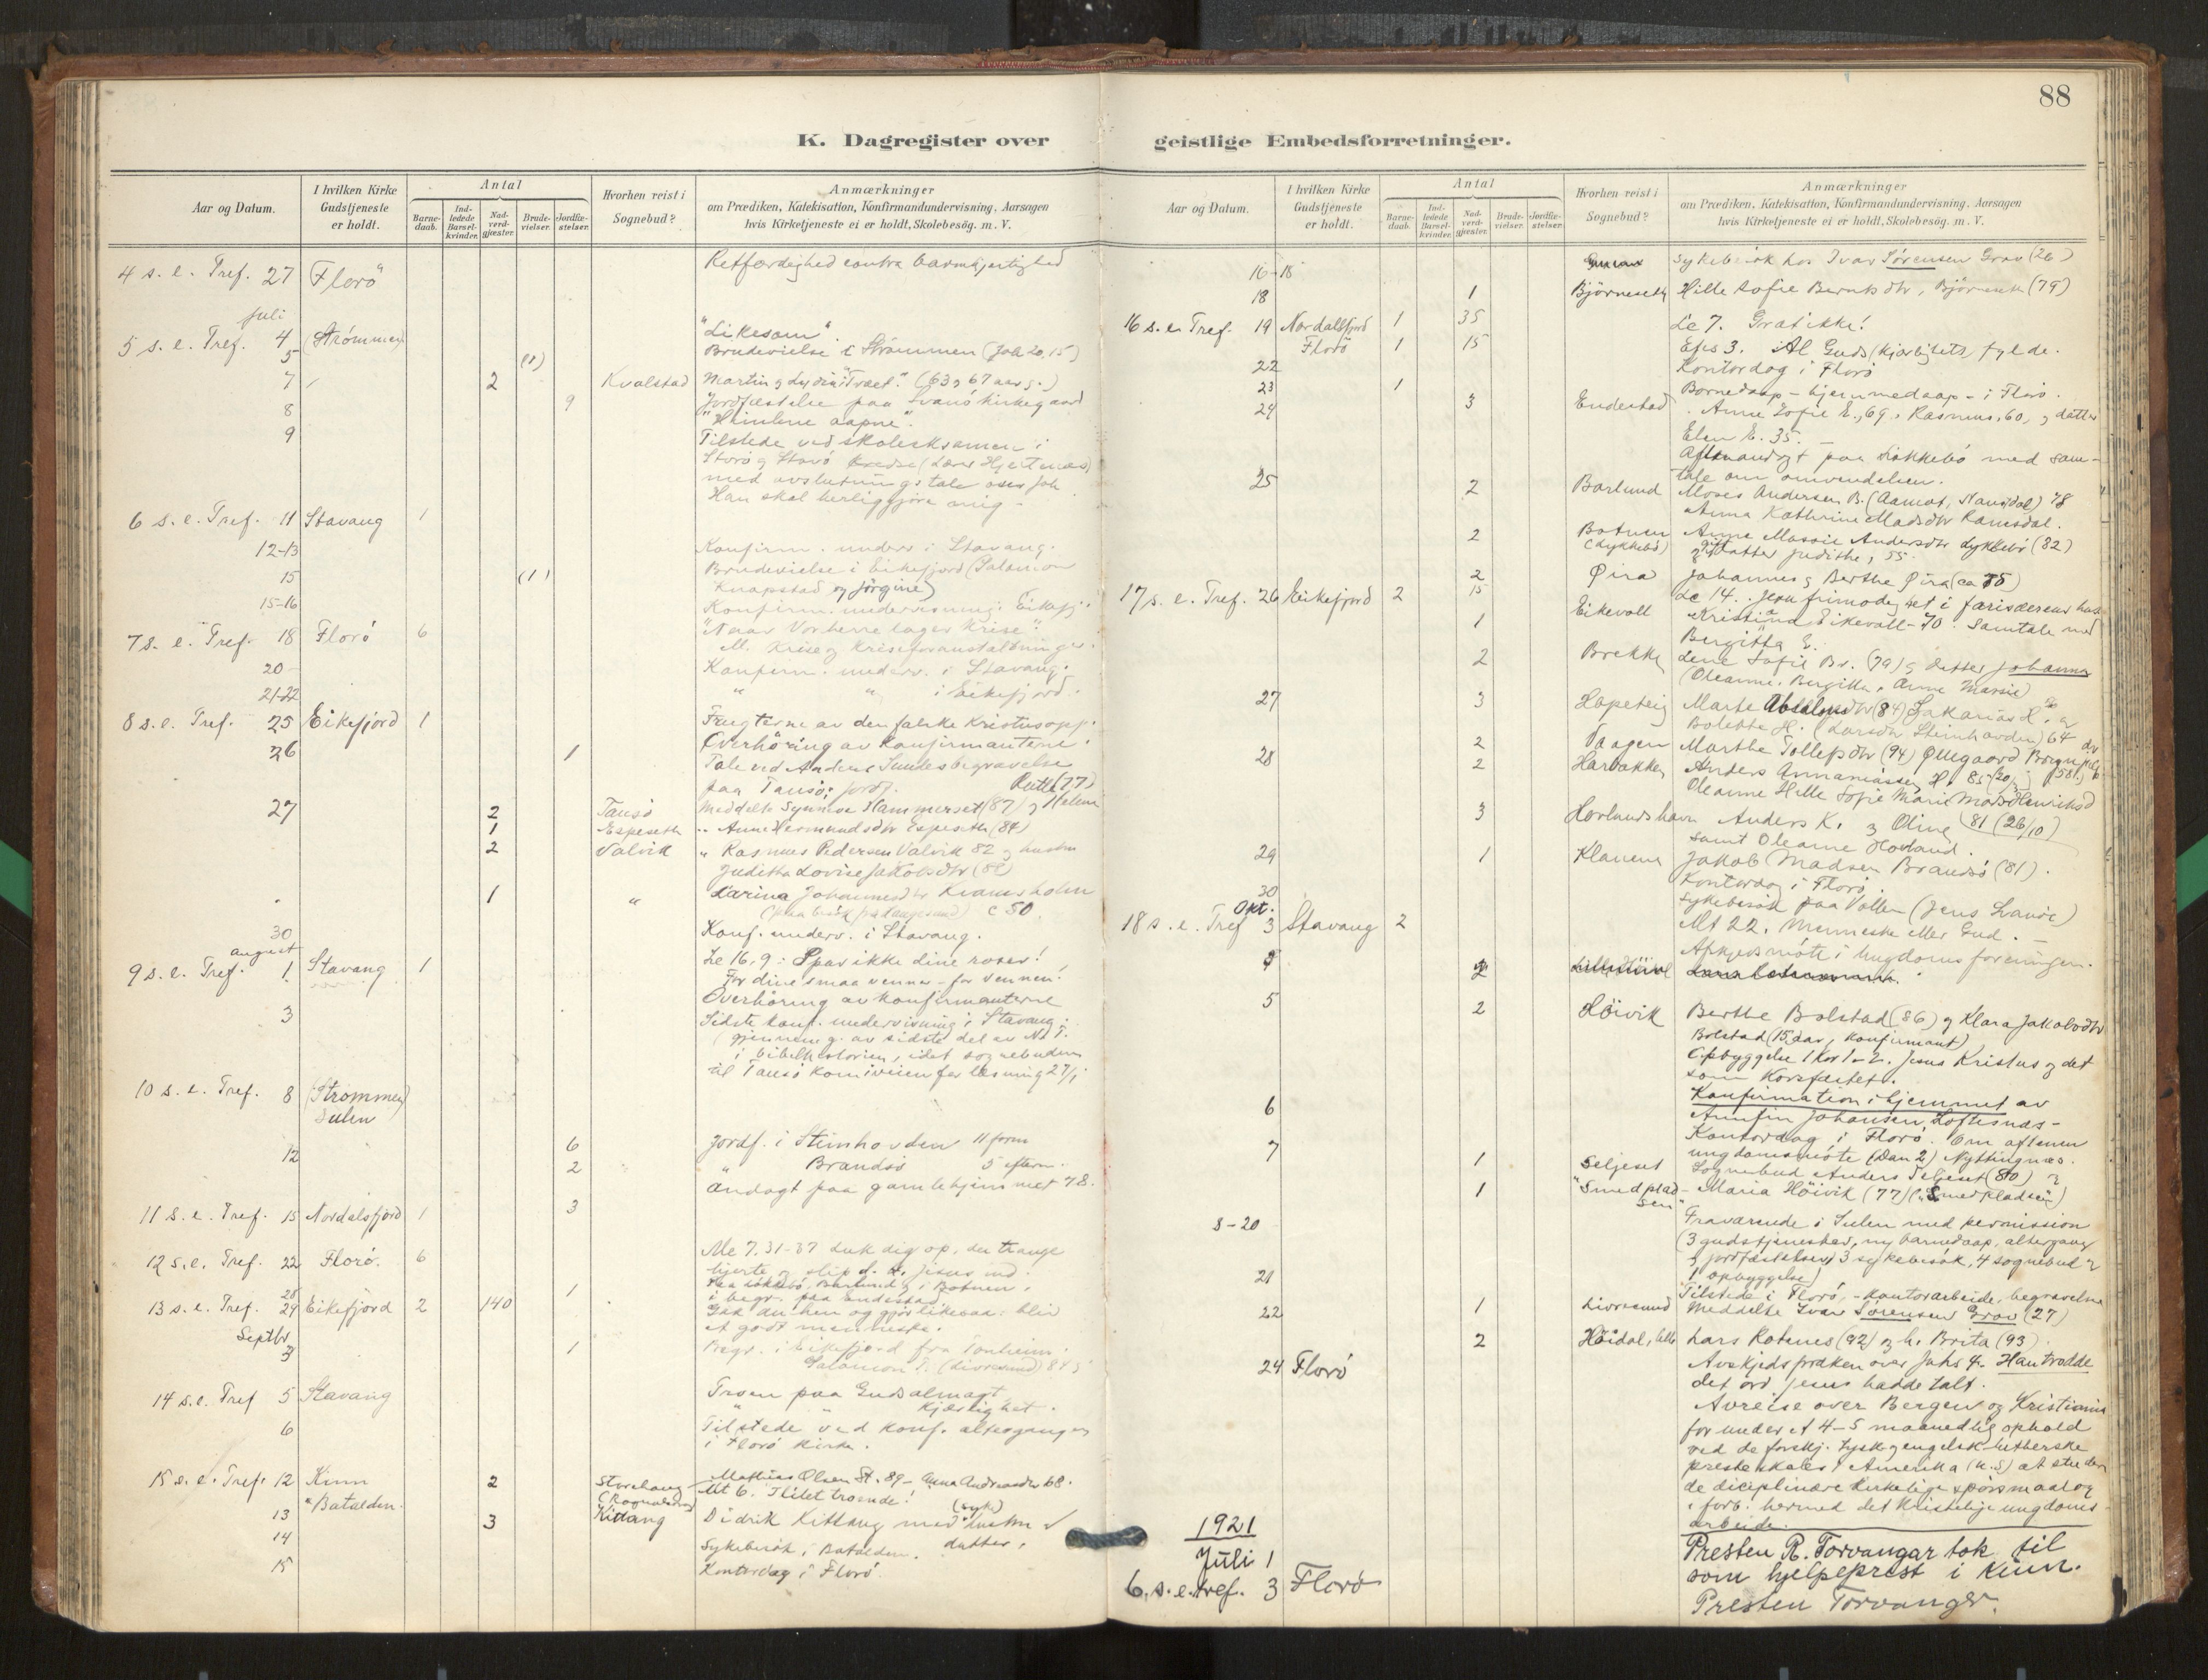 88
K. Dagregister over geistlige Embedsforretninger.
Aar og Datum.
I hvilken Kirke Gudstjeneste er holdt.
Antal
Barne-daab.
Ind-ledede Barsel-kvinder.
Nad-verd-gjæster.
Brude-vielser.
Jordfæ-stelser.
Hvorhen reist i Sognebud?
Anmærkninger
om Prædiken, Katekisation, Konfirmandundervisning, Aarsagen
hvis Kirketjeneste ei er holdt, Skolebesög. m. V.
4 s. e. Tref. 27 Florö Retfærdighed contra barmhjertighed
Juli
5 s. e. Tref. 4 (Strømmen) "Likesom".
5 (1) Brudevielse i Strømmen (Joh 20,15)
7 2 Kvalstad Martin og Lydia "Træet". (63 og 67 aar g.)
8 9 Jordfæstelse paa Svanö kirkegaard
"Himlene aapne".
9 Tilstede ved skoleeksamen i
med avslutningstale over Joh
Han skal herliggjöre mig -
6 s. e. Tref. 11 Stavang 1
12-13 Konfirm. underv. i Stavang.
15 (1) Brudevielse i Eikefjord (Salamon
Knapstad og Jörgine)
15-16 Konfirm. undervisning i Eikefj.
7 s. e. Tref. 18 Florö 6 "Naar Vorherre lager Krise":
20 Konfirm. underv. i Stavang.
21-22 " " i Eikefjord.
8 s. e. Tref. 25 Eikefjord 1 Frugterne av den falske Kristusopp.
26 1 Overhöring av konfirmanterne.
Tale ved Anders Sundes begravelse
paa Tansö; jordf.
27 2 Tansö Meddelte Synneve Hammerset (87) og Helene
1 Espeseth " Anne Hermundsdtr Espeseth (84)
2 Valvik " Rasmus Pedersen Valvik 82 og hustru
Juditha Lovise Jakobsdtr (82)
1 " Larina Johannesdtr Kvamsholm
(paa besök fra Haugesund) c 50.
30 Konf. underv. i Stavang.
august
9 s. e. Tref. 1 Stavang 1 Lc 16,9: Spar ikke dine roser!
For dine smaa venner - for vennen!
Overhöring av konfirmanterne
3 Sidste konf. undervisning i Stavang;
(gjennemg. av sidste del av N.T.
i bibelhistorien, idet sognebudene
til Tansö kom iveien for læsning 27/7
10 s. e. Tref. 8 (Strömmen)
Sulen
12 6 Jordf. i Steinhovden 11 form
2 " Brandsö 5 efterm.
Andagt paa gamlehjemmet 78.
11 s. e. Tref. 15 Nordalsfjord 1 3
12 s. e. Tref. 22 Florö. 6 Mc 7. 31-37 Luk dig op, du trange
hjerte og slip d. H. Jesus ind.
28 1 i begr. paa Endestad
13 s. e. Tref. 29 Eikefjord 2 140 Gak du hen og gjör likesaa: bliv
et godt menneske.
Septbr
3 1 Begr. i Eikefjord fra Tonheim:
Salamon T. (Livresund) 84
14 s. e. Tref 5 Stavang Troen paa Guds almagt
" " kjærlighet.
6 Tilstede ved konf. altergangen
i Florö kirke.
15 s. e. Tref. 12 Kinn 2 Storehaug Mathias Olsen St. 89 - Anna Andreasdtr 68.
"Batalden. Mt 6. I litet troende!
13 3 Kittang Didrik Kittang med (syk) hustru og
datter.
14 Sykebesök i Batalden.
15 Kontordag i Florö.
Aar og Datum.
I hvilken Kirke Gudstjeneste er holdt.
Antal
Barne-daab.
Ind-ledede Barsel-kvinder.
Nad-verd-gjæster.
Brude-vielser.
Jordfæ-stelser.
Hvorhen reist i Sognebud?
Anmærkninger
om Prædiken, Katekisation, Konfirmandundervisning, Aarsagen
hvis Kirketjeneste ei er holdt, Skolebesög. m. V.
16-18 Sykebesök hos Ivar Sörensen Grov (26)
18 1 Björneseth Hille Sofie Berntsdtr, Björneseth (79)
16 s. e. Tref. 19 Nordalsfjord 1 35 Lc 7. Graat ikke!
Florö 1 15 Efes 3. Al Guds (kjærlighets) fylde.
22 Kontordag i Florö
23 1 Barnedaap - hjemmedaap - i Florö.
24 3 Endestad Anne Sofie E., 69, Rasmus, 60, og datter
Elen E. 35.
Aftenandagt paa Lökkebö med sam-
tale om omvendelsen.
25 2 Barlund Moses Andersen B. (Aamot, Nausdal) 78
Anna Kathrine Madsdtr Ramsdal.
2 Botnen Anne Massie Andersdtr Lykkebö (82)
(Lykkebö) og datter Judithe, 55.
2 Øira Johannes og Berthe Øira (ca 75)
17 s. e. Tref. 26 Eikefjord 2 15 Lc 14. Jesu frimodighet i farisæerens hus
1 Eikevoll Kristina Eikevoll - 70. Samtale med
Bergitta E.
2 Brekke Lene Sofie Br. (79) og datter Johanna
(Oleanna, Bergitta, Anne Marsie)
27 3 Hopeteig Marte Absalonsdtr (84) Zakarias H. og
Bolette H. (Larsdtr Steinhovden) 64
2 Vaagen Marthe Tollefsdtr (94)
28 2 Harbakken Anders Annaniassen H. 85
Oleanne Hille Sofie Marie Madsdtr
3 Hovlandshavn Anders K. og Oline 81 (26/10)
samt Oleanne Hovland.
29 1 Klavene Jakob Madsen Brandsö (81).
30 Kontordag i Florö.
Sykebesök paa Vollen (Jens Svanöe)
Okt.
18 s. e. Tref 3 Stavang 2 Mt 22. Menneske eller Gud. -
Avskjedsmöte i Ungdomsforeningen.
5 2 Höivik Berthe Bolstad (86) og Klara Jakobsdtr
Bolstad (15 aar, konfirmant)
Opbyggelse 1 Kor 1-2. Jesus Kristus og det
som korsfæstet.
6 Konfirmation i hjemmet av
Annfin Johansen Loftesnæs -
7 Kontordag i Florö. Om aftenen
ungdomsmöte (Dan 2) Nyttingnæs.
1 Seljeset Sognebud Anders Seljeset (80) og
1 "Smedplad- sen" - Maria Höivik (77) ("Smedpladsen")
8-20 Fraværende i Sulen med permission
(3 gudstjenester, m/ barnedaap, altergang
og jordfæstelser) 3 sykebesök, 4 sognebud og
1 opbyggelse)
21 Tilstede i Florö, - kontorarbeide, begravelse
22 1 Livresund Meddelte Ivar Sörensen Grov (27)
2 Höidal, lille Lars Rotenes (92) og h. Brita (93).
24 Florö Avskjedspræken over Johs 4. Han trodde
det ord Jesus hadde talt.
Avreise over Bergen og Kristiania
for under et 4-5 maanedlig ophold
ved de forskj. tysk og engelsk lutherske
presteskoler i Amerika (U.S) at studere
de diciplinære kirkelige spörsmaal og
i forb. hermed det kristelige ungdoms-
arbeide.
1921
Juli 1 Presten R. Torvanger tok til
som hjelpeprest i Kinn.
6. s. e. tref. 3 Florö Presten Torvanger.